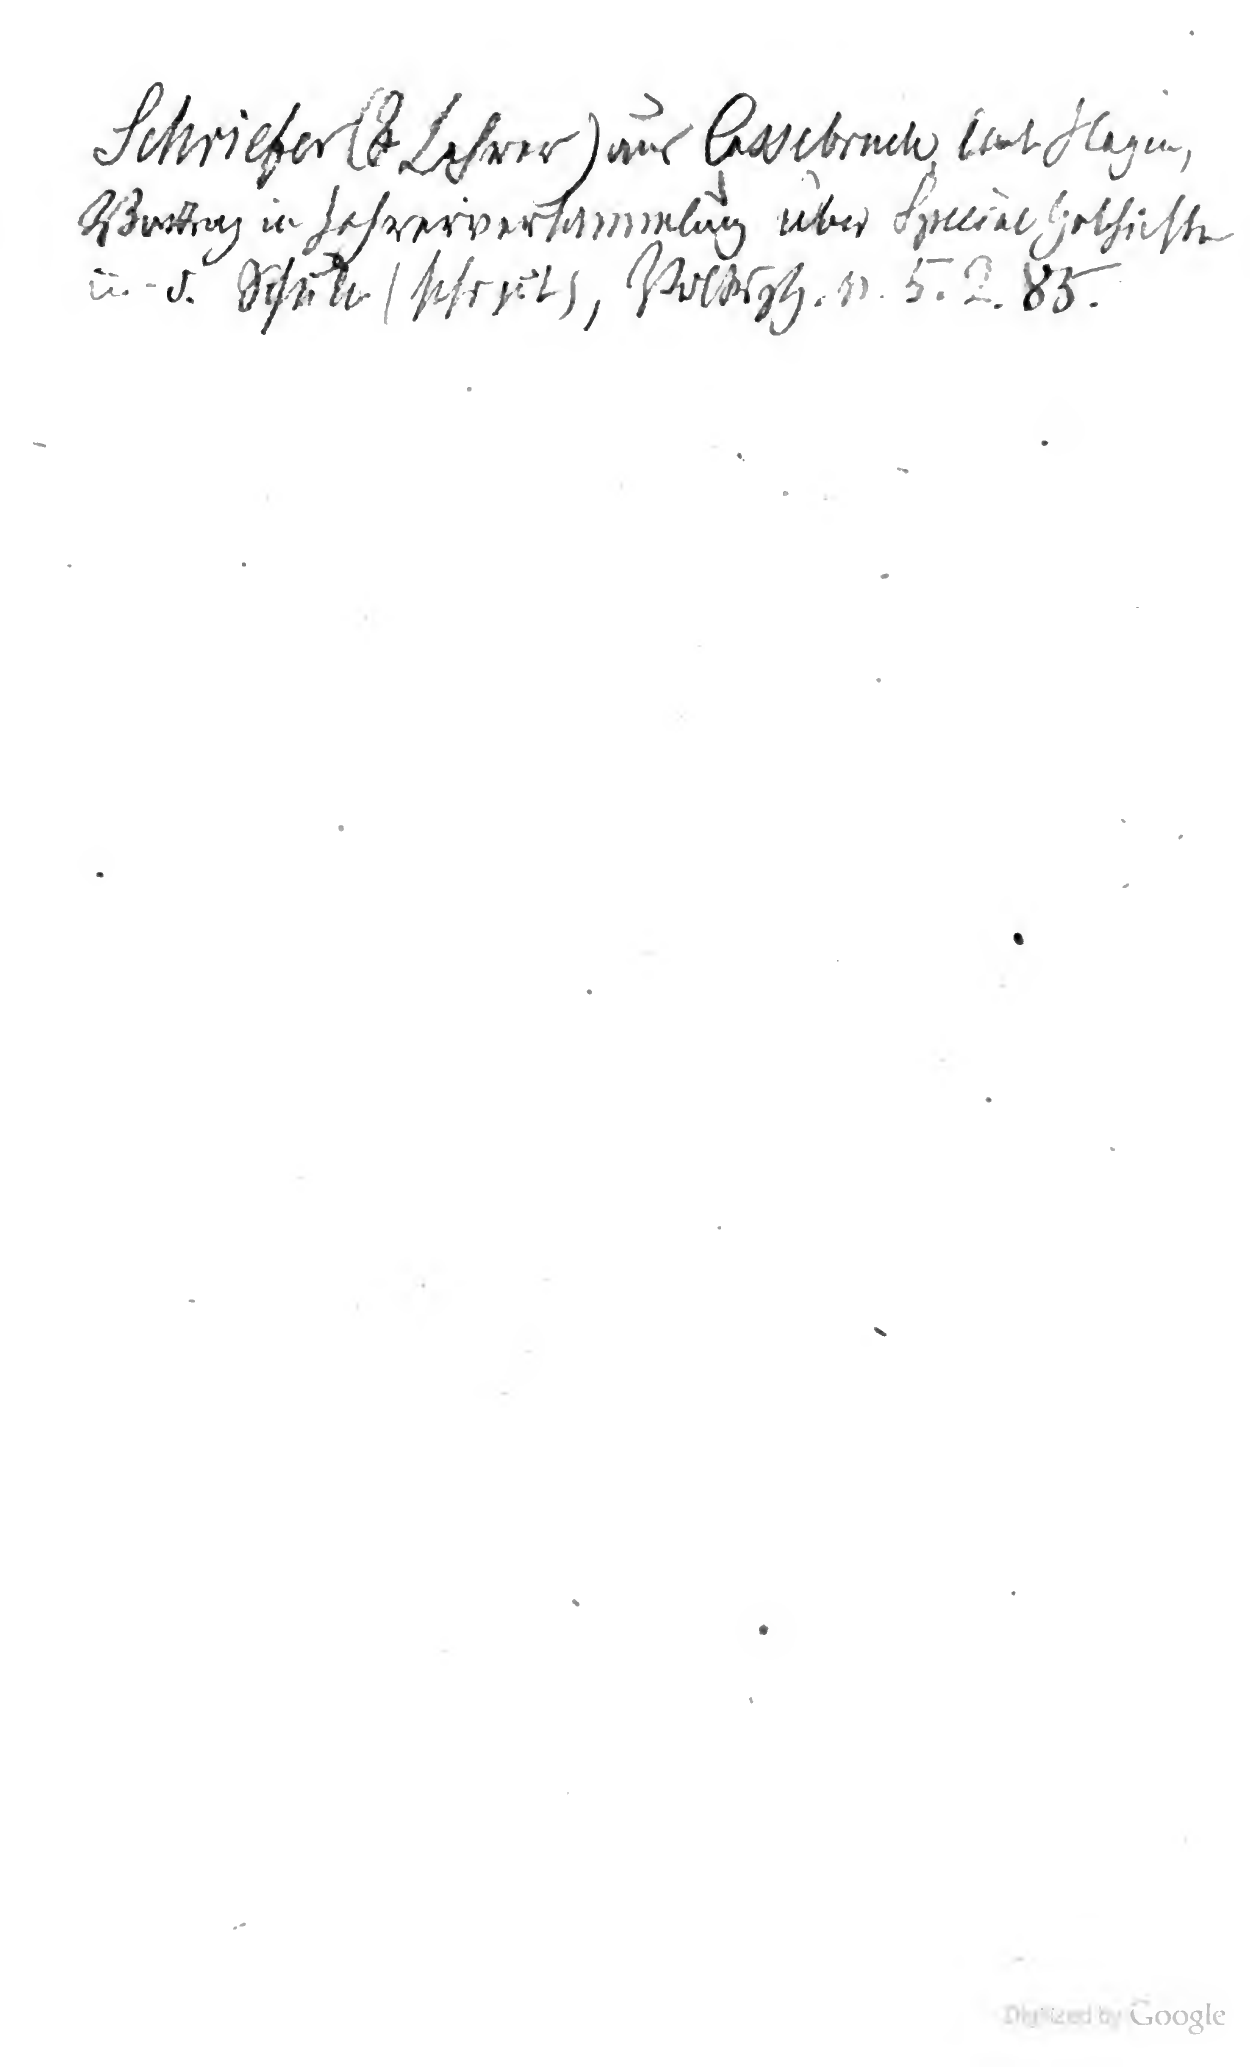 Schriefer (Lehrer) aus Cassebruch, Amt Hagen,
Vortrag in Lehrerversammlung über Special Geschichte
u. d. Schule (sehr gut), Volksztg. v. 5. 2. 85.
Digitized by Google